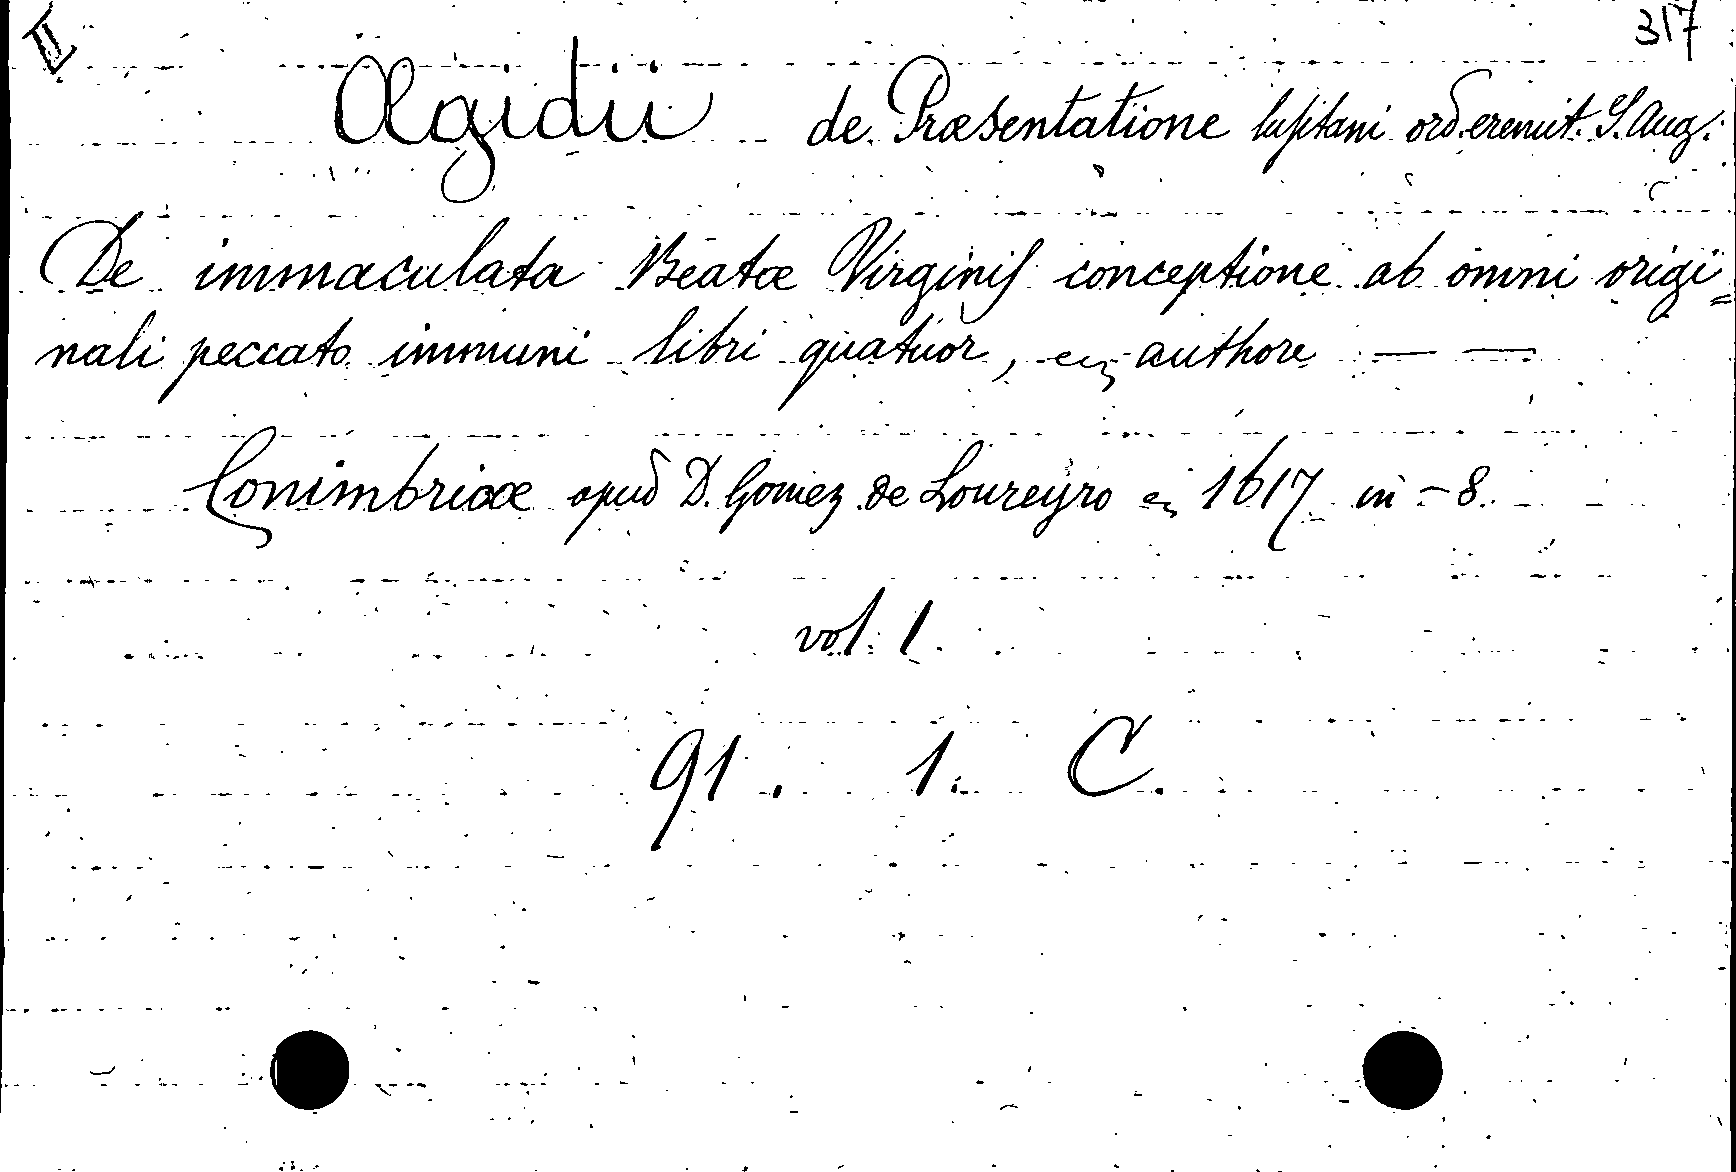 II
317
Ægidii de Præsentatione lusitani ord. eremit. S. Aug.
De immaculata Beatæ Virginis conceptione ab omni origi=
nali peccato immuni libri quatuor, authore — —
Conimbricæ apud D. Gomez de Loureyro 1617 in-8.
vol. 1.
91. 1. C.